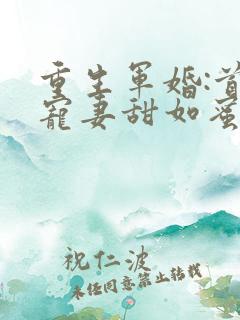 重生軍婚:首
寵妻甜如蜜
祝仁波
未经同意禁止转载